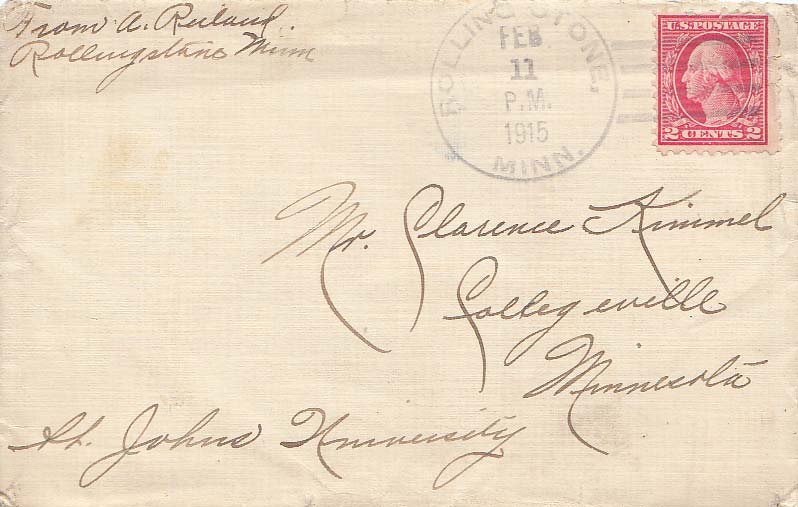 From A. Rulaud.
Rollingstone Minn
ROLLING STONE,
FEB
11
P.M.
1915
MINN.
U.S. POSTAGE
2 CENTS 2
Mr. Clarence Kimmel
Collegeville
Minnesota
St. Johns University